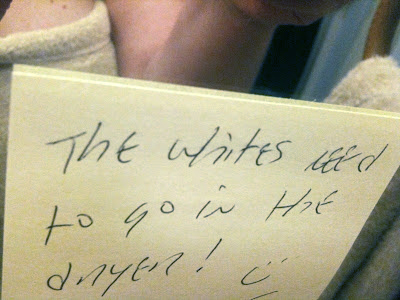 The whites need
to go in the
dryer!